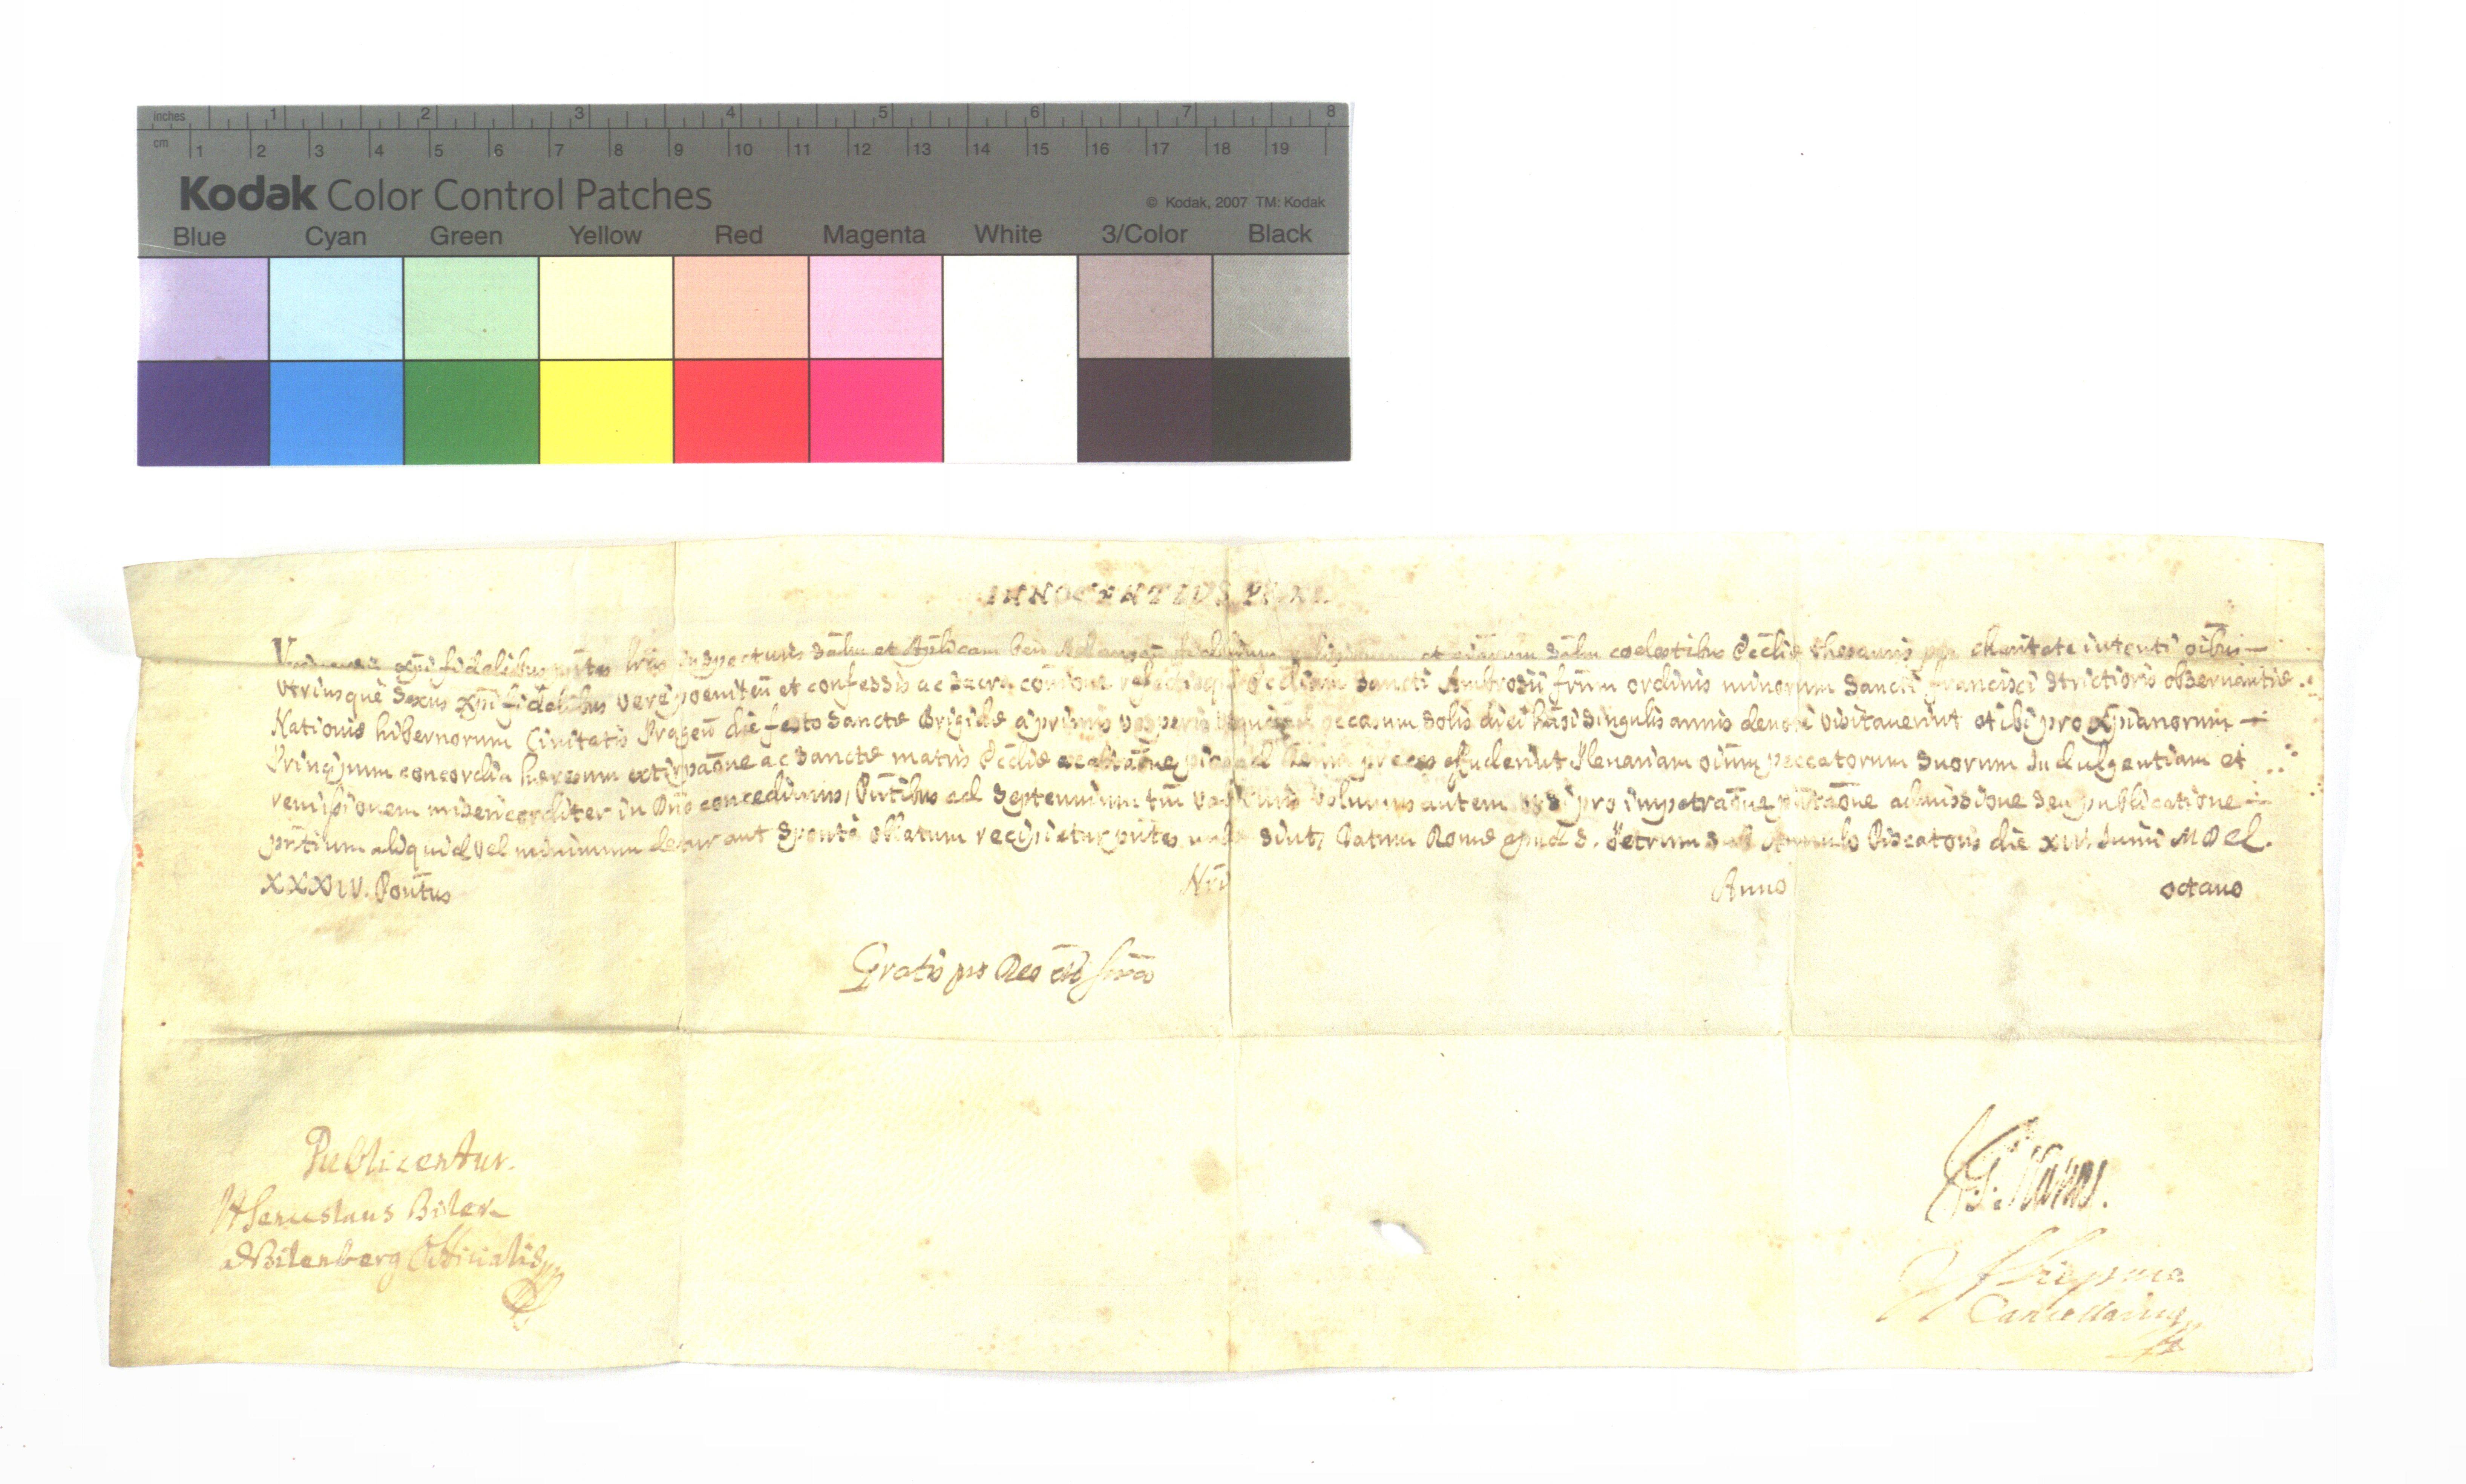 inches 1 2 3 4 5 6 7 8
cm 1 2 3 4 5 6 7 8 9 10 11 12 13 14 15 16 17 18 19
Kodak Color Control Patches
© Kodak, 2007 TM: Kodak
Blue Cyan Green Yellow Red Magenta White 3/Color Black
INNOCENTIVS PP. XI.
Vniversis xp̃i fidelibus pñtes lr̃as inspecturis sãlm et Ap̃licam ben̄ et aĩarum sãlm coelestibus Eccliæ thesauris charitate intenti oĩbus
Vtriusque sexus xp̃i fidelibus verè poenitẽn et confessis ac sacra cõmunione Eccliam sancti Ambrosii frũm ordinis minorum sancti francisci strictioris obseruantiæ
Nationis hibernorum Ciuitatis Pragen̄ die festo sanctæ Brigidæ à primis vesperis occasum solis diei hmõi singulis annis deuotè visitauerint et ibi pro xp̃ianorum
Principum concordia hæresum extirpaõne ac sanctæ matris Eccliæ exaltaõne pias ad preces effuderint Plenariam oĩum peccatorum suorum Indulgentiam et
remissionem misericorditer in Dño concedimus, Pñtibus ad septennium tm̃ valituris Volumus autem ut si pro impetraõne pñtaõne admissione seu publicatione
pñtium aliquid vel minimum detur aut sponte oblatum recipiatur pñtes nullæ sint, Datum Romæ apud S. Petrum sub Annulo Piscatoris die XIV. Junii MDCL.
XXXIV. Pontus Nr̃i Anno octauo
Gratis pro Deo
Publicentur.
Wenceslaus Bilek
à Bilenberg Officialis
Cancellarius